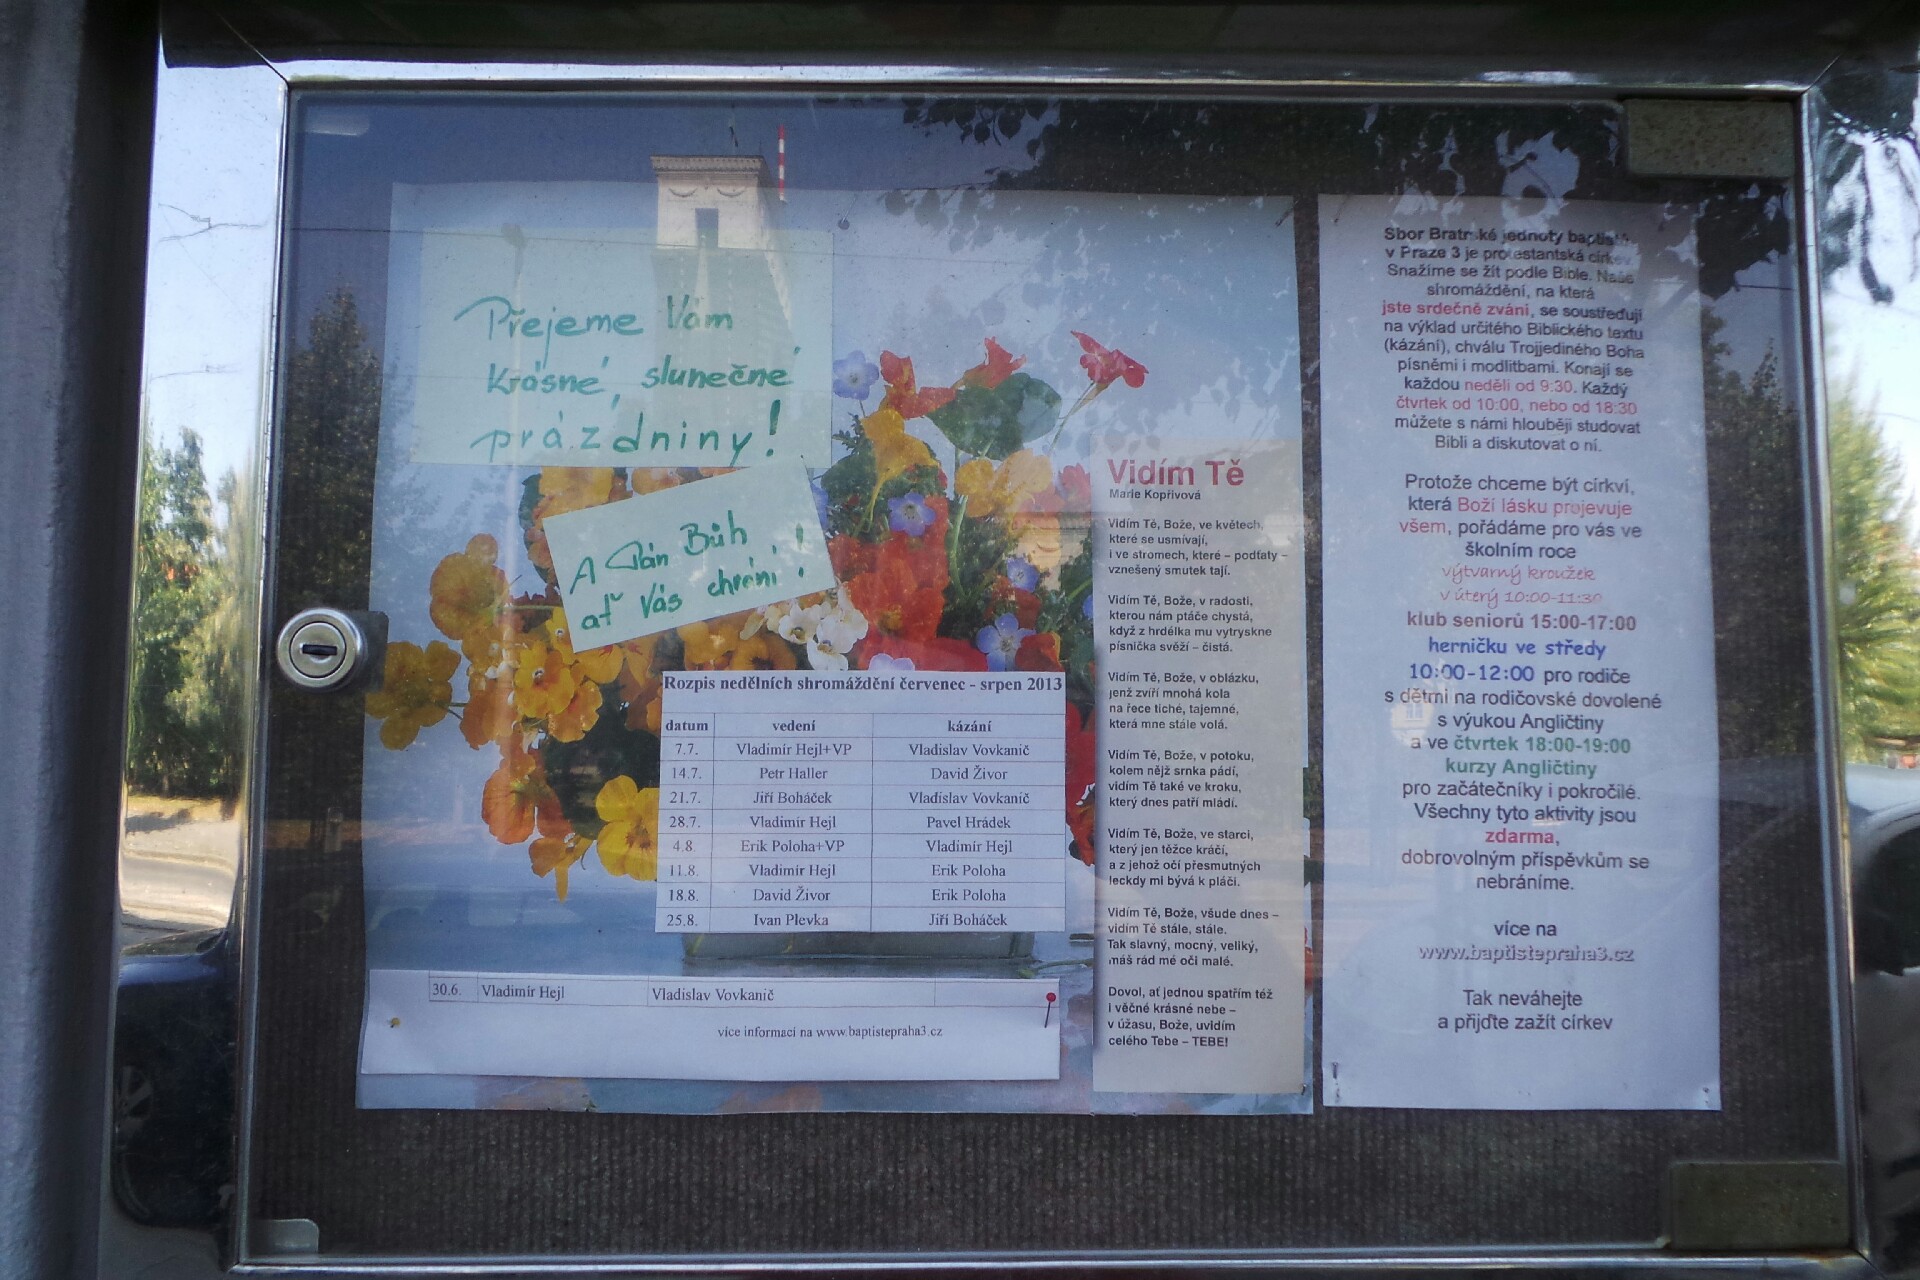 Přejeme Vám
krásné, slunečné
prázdniny!
A Pán Bůh
ať Vás chrání!
Rozpis nedělních shromáždění červenec - srpen 2013
datum vedení kázání
7.7. Vladimír Hejl+VP Vladislav Vovkanič
14.7. Petr Haller David Živor
21.7. Jiří Boháček Vladislav Vovkanič
28.7. Vladimír Hejl Pavel Hrádek
4.8. Erik Poloha+VP Vladimír Hejl
11.8. Vladimír Hejl Erik Poloha
18.8. David Živor Erik Poloha
25.8. Ivan Plevka Jiří Boháček
30.6. Vladimír Hejl Vladislav Vovkanič
více informací na www.baptistepraha3.cz
Vidím Tě
Marie Kopřivová
Vidím Tě, Bože, ve květech,
které se usmívají,
i ve stromech, které – podťaty –
vznešený smutek tají.
Vidím Tě, Bože, v radosti,
kterou nám ptáče chystá,
když z hrdélka mu vytryskne
písnička svěží – čistá.
Vidím Tě, Bože, v oblázku,
jenž zvíří mnohá kola
na řece tiché, tajemné,
která mne stále volá.
Vidím Tě, Bože, v potoku,
kolem nějž srnka pádí,
vidím Tě také ve kroku,
který dnes patří mládí.
Vidím Tě, Bože, ve starci,
který jen těžce kráčí,
a z jehož očí přesmutných
leckdy mi bývá k pláči.
Vidím Tě, Bože, všude dnes –
vidím Tě stále, stále.
Tak slavný, mocný, veliký,
máš rád mé oči malé.
Dovol, ať jednou spatřím též
i věčné krásné nebe –
v úžasu, Bože, uvidím
celého Tebe – TEBE!
Sbor Bratrské jednoty baptistů
v Praze 3 je protestantská církev.
Snažíme se žít podle Bible. Naše
shromáždění, na která
jste srdečně zváni, se soustřeďují
na výklad určitého Biblického textu
(kázání), chválu Trojjediného Boha
písněmi i modlitbami. Konají se
každou neděli od 9:30. Každý
čtvrtek od 10:00, nebo od 18:30
můžete s námi hlouběji studovat
Bibli a diskutovat o ní.
Protože chceme být církví,
která Boží lásku projevuje
všem, pořádáme pro vás ve
školním roce
výtvarný kroužek
v úterý 10:00-11:30
klub seniorů 15:00-17:00
herničku ve středy
10:00-12:00 pro rodiče
s dětmi na rodičovské dovolené
s výukou Angličtiny
a ve čtvrtek 18:00-19:00
kurzy Angličtiny
pro začátečníky i pokročilé.
Všechny tyto aktivity jsou
zdarma,
dobrovolným příspěvkům se
nebráníme.
více na
www.baptistepraha3.cz
Tak neváhejte
a přijďte zažít církev